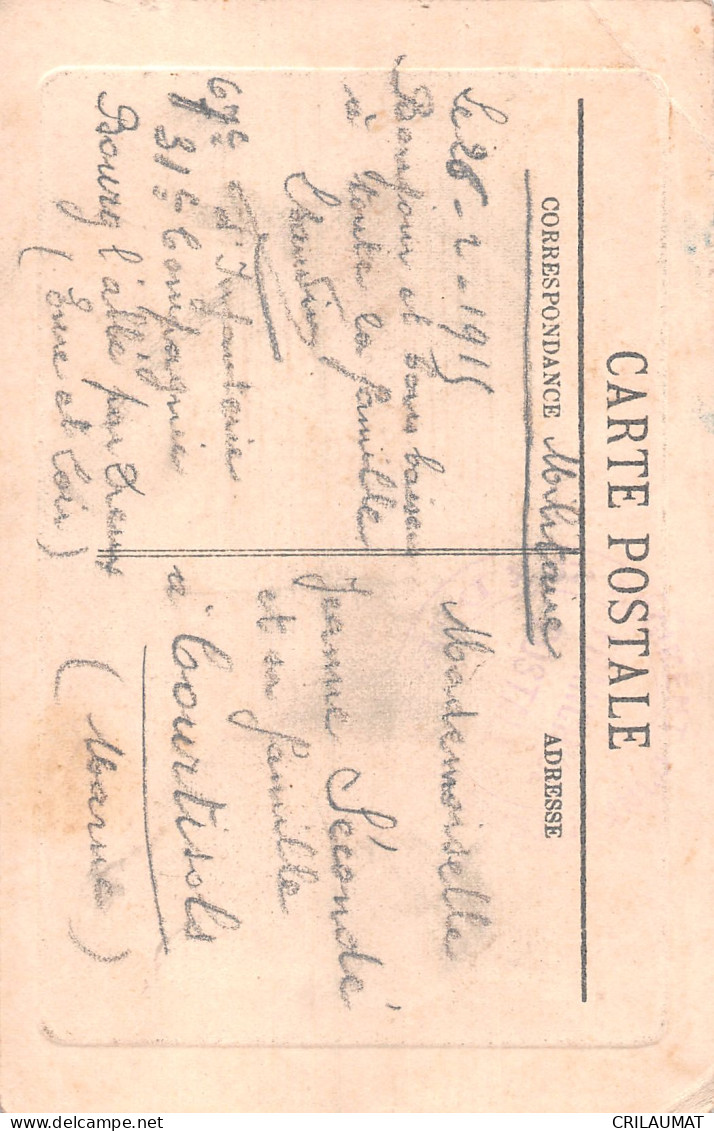 CARTE POSTALE
CORRESPONDANCE
Militaire
ADRESSE
Le 26-2-1915
Bonjour et bons baisers
à toute la famille
67e d'Infanterie
31e Compagnie
Bourg l'abbé par Dreux
(Eure et Loir)
Mademoiselle
Jeanne Sécondé
et sa famille
à Courtisols
(Marne)
CRILAUMAT